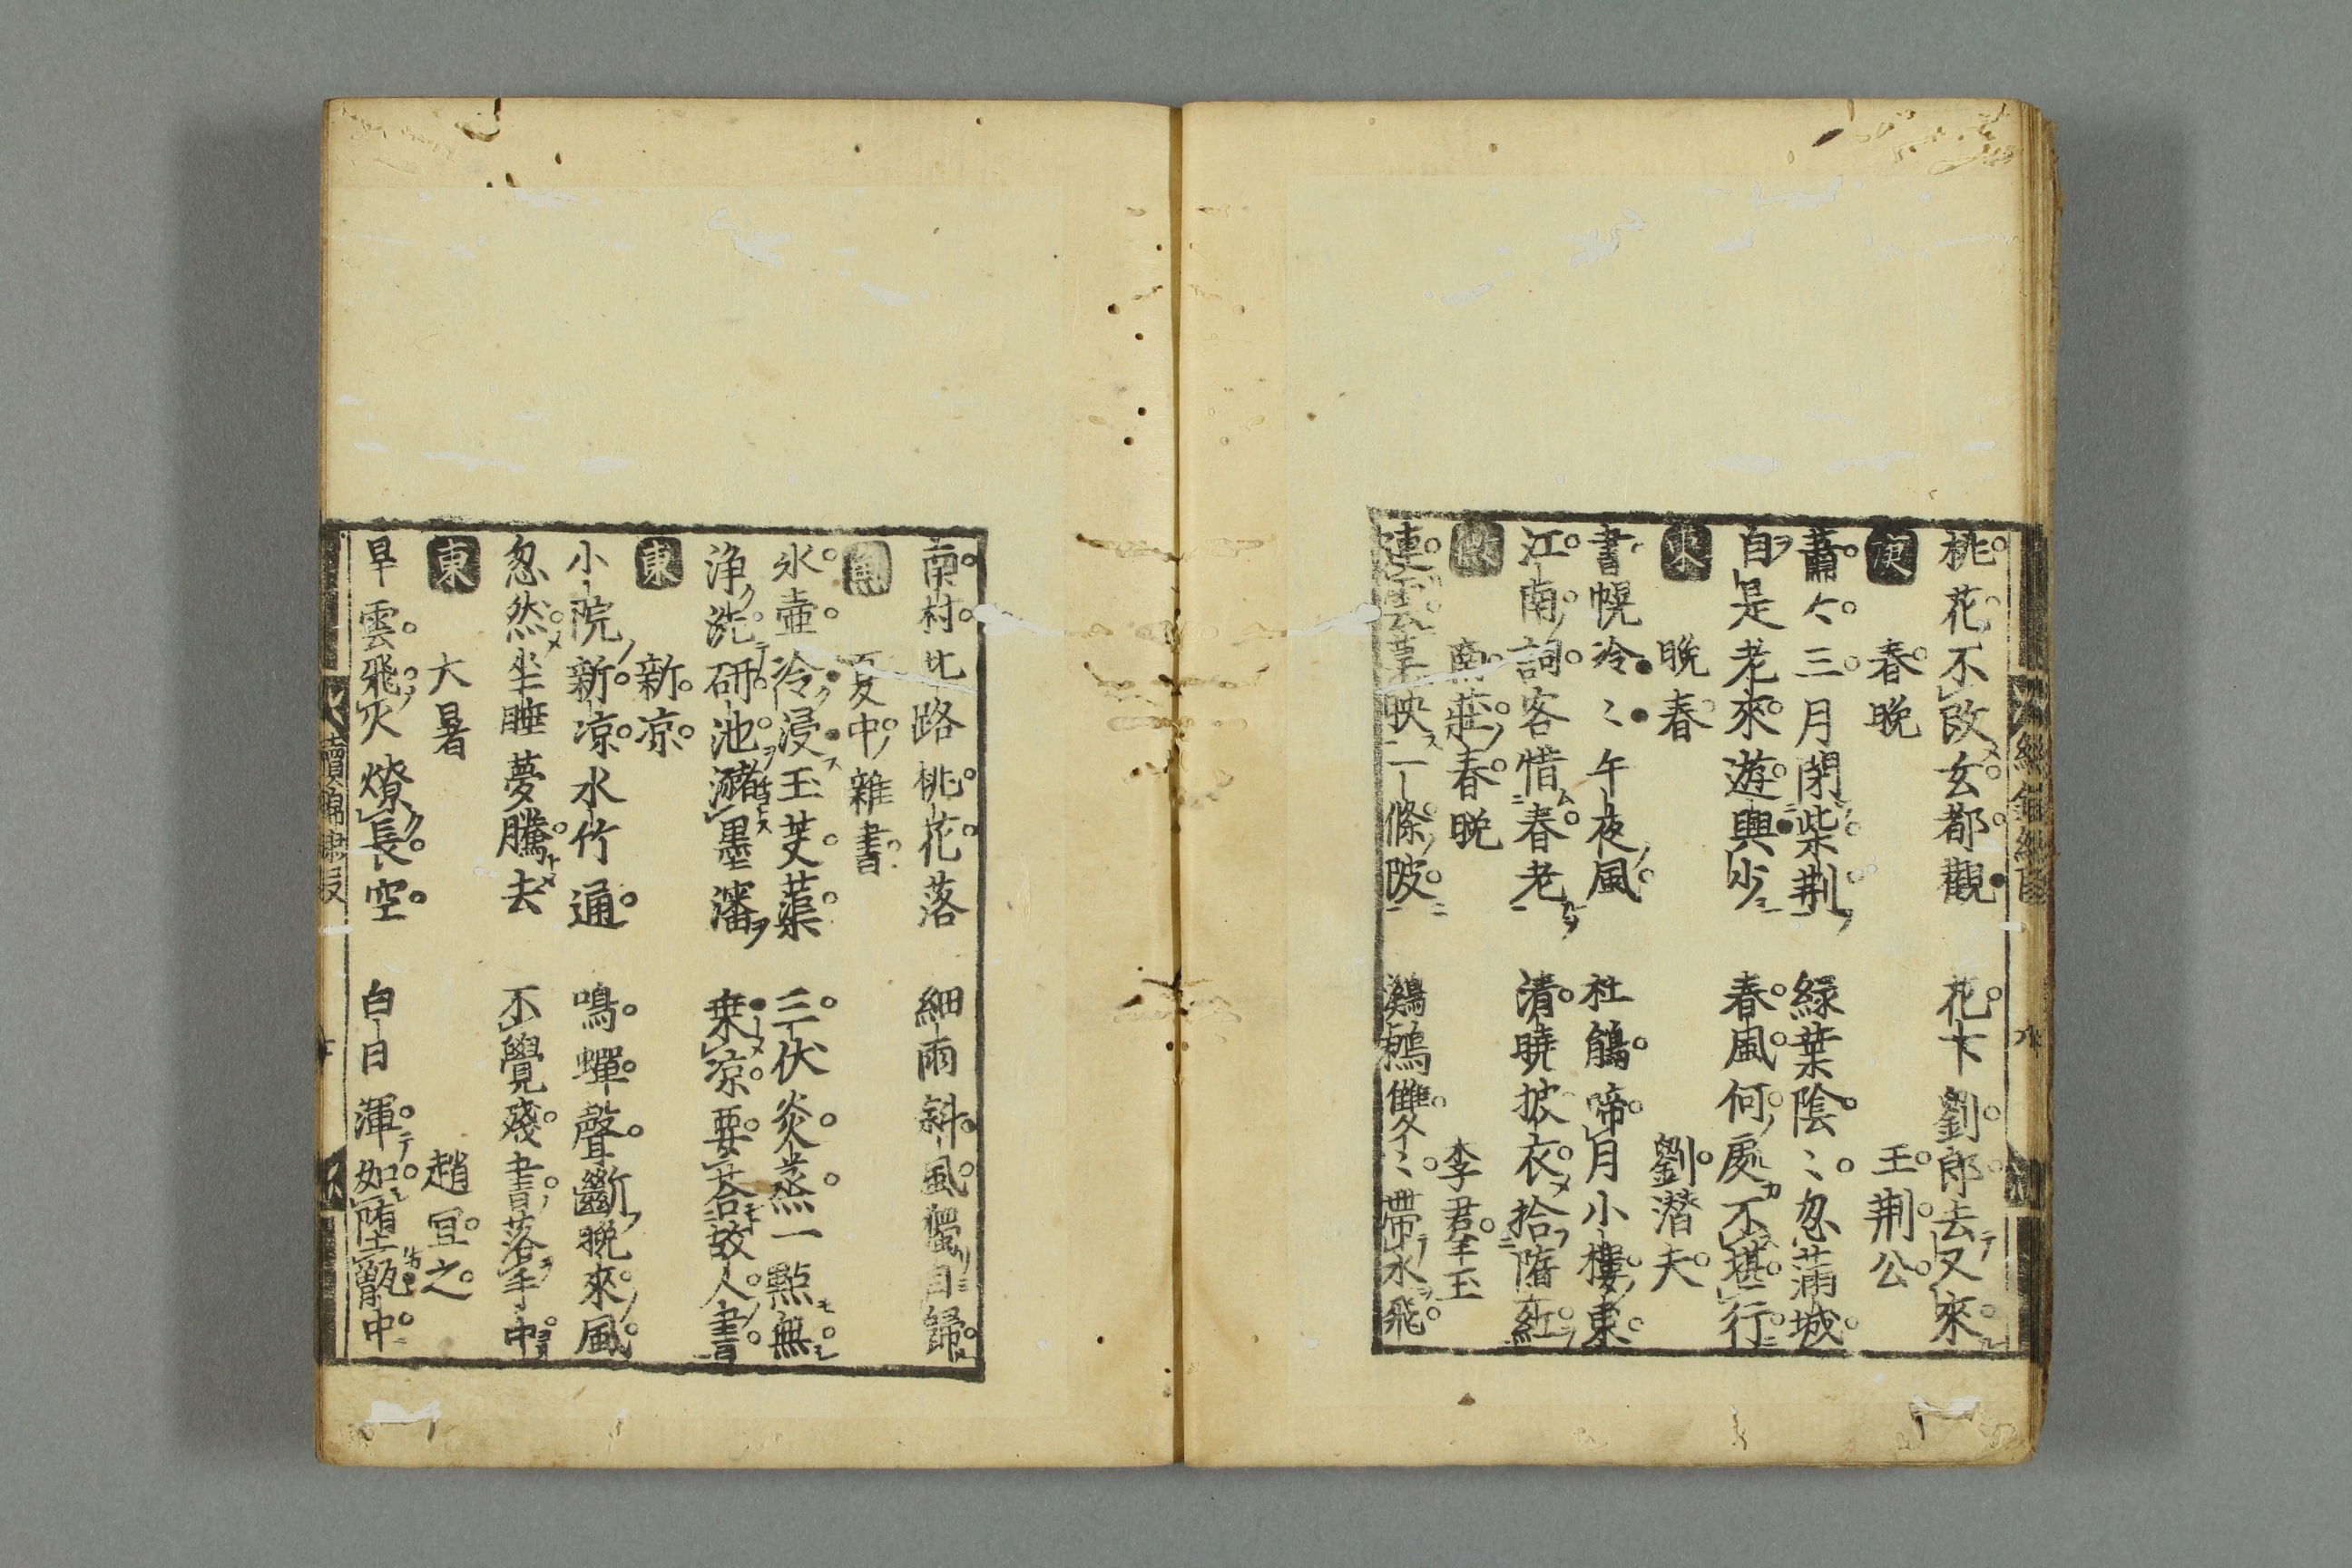 桃花不改玄都觀　花下劉郎去又來
庚　春晩　王荊公
蕭々三月閉柴荊　綠葉陰〻忽滿城
自是老來遊興少　春風何處不堪行
東　晩春　劉潛夫
書幌冷〻午夜風　杜鵑啼月小樓東
江南詞客惜春老　清曉披衣拾隋紅
南莊春晩　李君玉
連雲草映一條陂　鸂鶒雙〻帶水飛
南村北路桃花落　細雨斜風獨自歸
夏中雜書
氷壺冷浸玉芙蕖　三伏炎蒸一點無
淨洗硏池瀦墨瀋　乗凉要荅故人書
東　新凉
小院新凉水竹通　鳴蟬聲斷晩來風
忽然坐睡夢騰去　不覺殘書落手中
東　大暑　趙冝之
旱雲飛火燎長空　白日渾如堕甑中